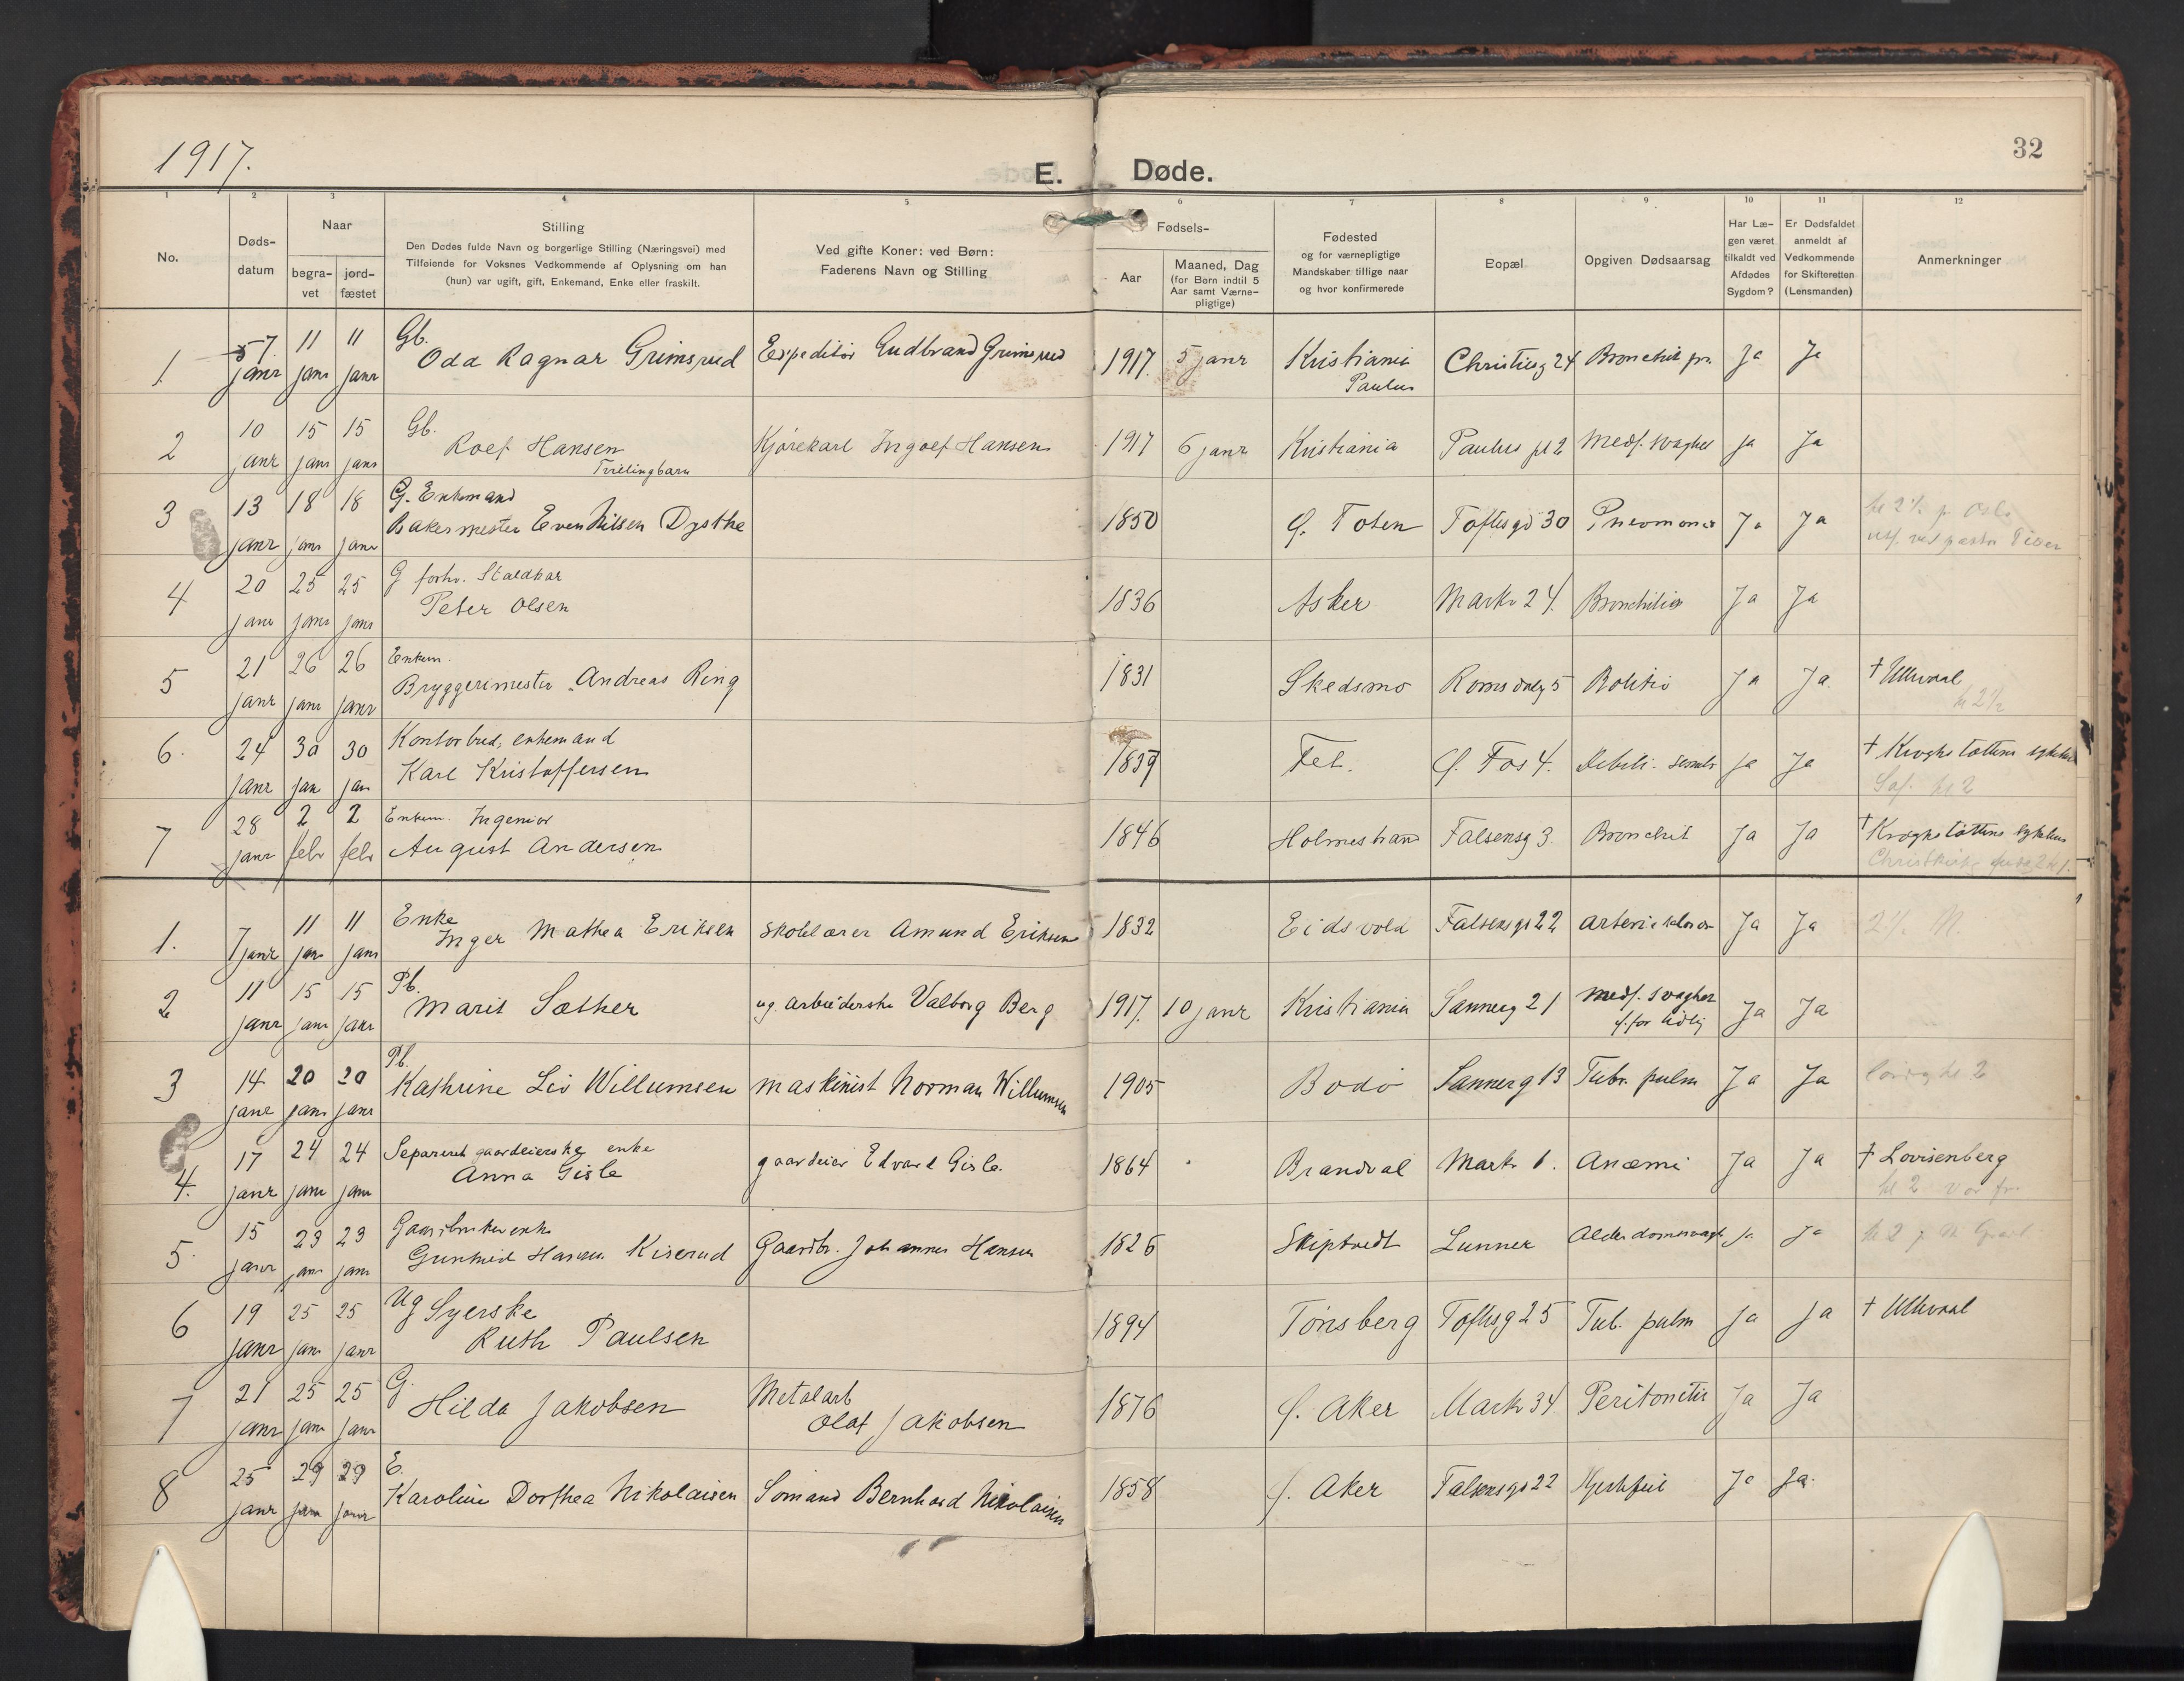 1917.
E. Døde.
32
1 2 3 4 5 6 7 8 9 10 11 12
No.
Døds-
datum
Naar
begra-
vet
jord-
fæstet
Stilling
Den Dødes fulde Navn og borgerlige Stilling (Næringsvei) med
Tilføiende for Voksnes Vedkommende af Oplysning om han
(hun) var ugift, gift, Enkemand, Enke eller fraskilt.
Ved gifte Koner: ved Børn:
Faderens Navn og Stilling
Fødsels-
Aar
Maaned, Dag
(for Børn indtil 5
Aar samt Værne-
pligtige)
Fødested
og for værnepligtige
Mandskaber tillige naar
og hvor konfirmerede
Bopæl
Opgiven Dødsaarsag
Har Læ-
gen været
tilkaldt ved
Afdødes
Sygdom?
Er Dødsfaldet
anmeldt af
Vedkommende
for Skifteretten
(Lensmanden)
Anmerkninger
1 7. janr 11 janr 11 janr Gb. Oda Ragnar Grimsrud Expeditør Gudbrand Grimsrud 1917. 5 janr Kristiania Paulus Christiesg 24 Bronchit Ja Ja
2 10 janr 15 janr 15 janr Gb. Rolf Hansen Trillingbarn Kjørekarl Ingolf Hansen 1917 6 janr Kristiania Paulus pl 2 Medf. svaghed ja Ja
3 13 janr 18 janr 18 janr G. Enkemand Bakermester Even Nilsen Dysthe 1850 Ø. Toten Toftesgd 30 Pneumonia Ja Ja
4 20 janr 25 janr 25 janr G forhv. Staldkar Peter Olsen 1836 Asker Markv 24. Bronchitis Ja Ja
5 21 janr 26 janr 26 janr Enkem. Bryggerimester Andreas Ring 1831 Skedsmo Romsdalg 5 Ja Ja. † Ullevaal kl 2½
6. 24 janr 30 jan 30 jan Kontorbud, enkemand Karl Kristoffersen 1839 Fet. Ø. Fos 4. Debili. senilis ja Ja † Krogstøttens sykehus kl 2
7 28 janr 2 febr 2 febr Enkem. Ingeniør August Andersen 1846 Holmestrand Falsensg 3. Bronchit Ja Ja † Krogstøttens sykehus
1. 7 janr 11 jan 11 janr Enke Inger Mathea Eriksen Skolelærer Amund Eriksen 1832 Eidsvold Falsensgd 22 Arteriesklerose Ja Ja
2 11 janr 15 janr 15 janr Pb. Marit Sæther ug. arbeiderske Valborg Berg 1917. 10 janr Kristiania Sannerg 21 Medf. svaghet f. for tidlig Ja Ja
3 14 janr 20 janr 20 janr Pb. Kathrine Liv Willumsen Maskinist Norman Willumsen 1905 Bodø Sannerg 13 Tub. pulm Ja Ja
4. 17 janr 24 janr 24 janr Separeret gaardeierske enke Anna Gisle gaardeier Edvard Gisle. 1864 Brandval Markv 6. Anæmi Ja Ja † Lovisenberg
5. 15 janr 23 janr 23 janr Gaardbruker enke Hansen Kiserud Gaardbr. Johannes Hansen 1826 Skiptvedt Lunner Alderdomssvagh Ja Ja
6 19 janr 25 janr 25 janr Ug Syerske Ruth Paulsen 1894 Tønsberg Toftesg 25 Tub. pulm Ja Ja † Ullevaal
7 21 janr 25 janr 25 janr G. Hilda Jakobsen Metalarb Olaf Jakobsen 1876 Ø. Aker Markv 34 Peritonitis Ja Ja
8 25 janr 29 jan 29 janr E. Karoline Dorthea Nikolaisen Sømand Bernhard Nikolaisen 1858 Ø. Aker Falsensgd 22 Hjertefeil Ja Ja.